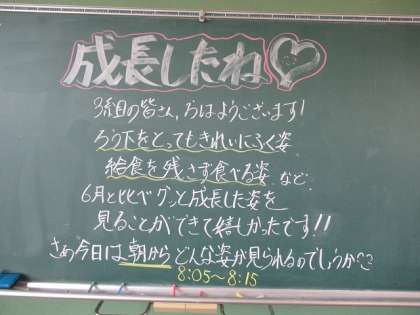 成長したね
3組目の皆さん、おはようございます!
ろう下をとってもきれいにふく姿
給食を残さず食べる姿 など
6月と比べグッと成長した姿を
見ることができて嬉しかったです!!
さあ今日は朝からどんな姿が見られるのでしょうか??
8:05〜8:15